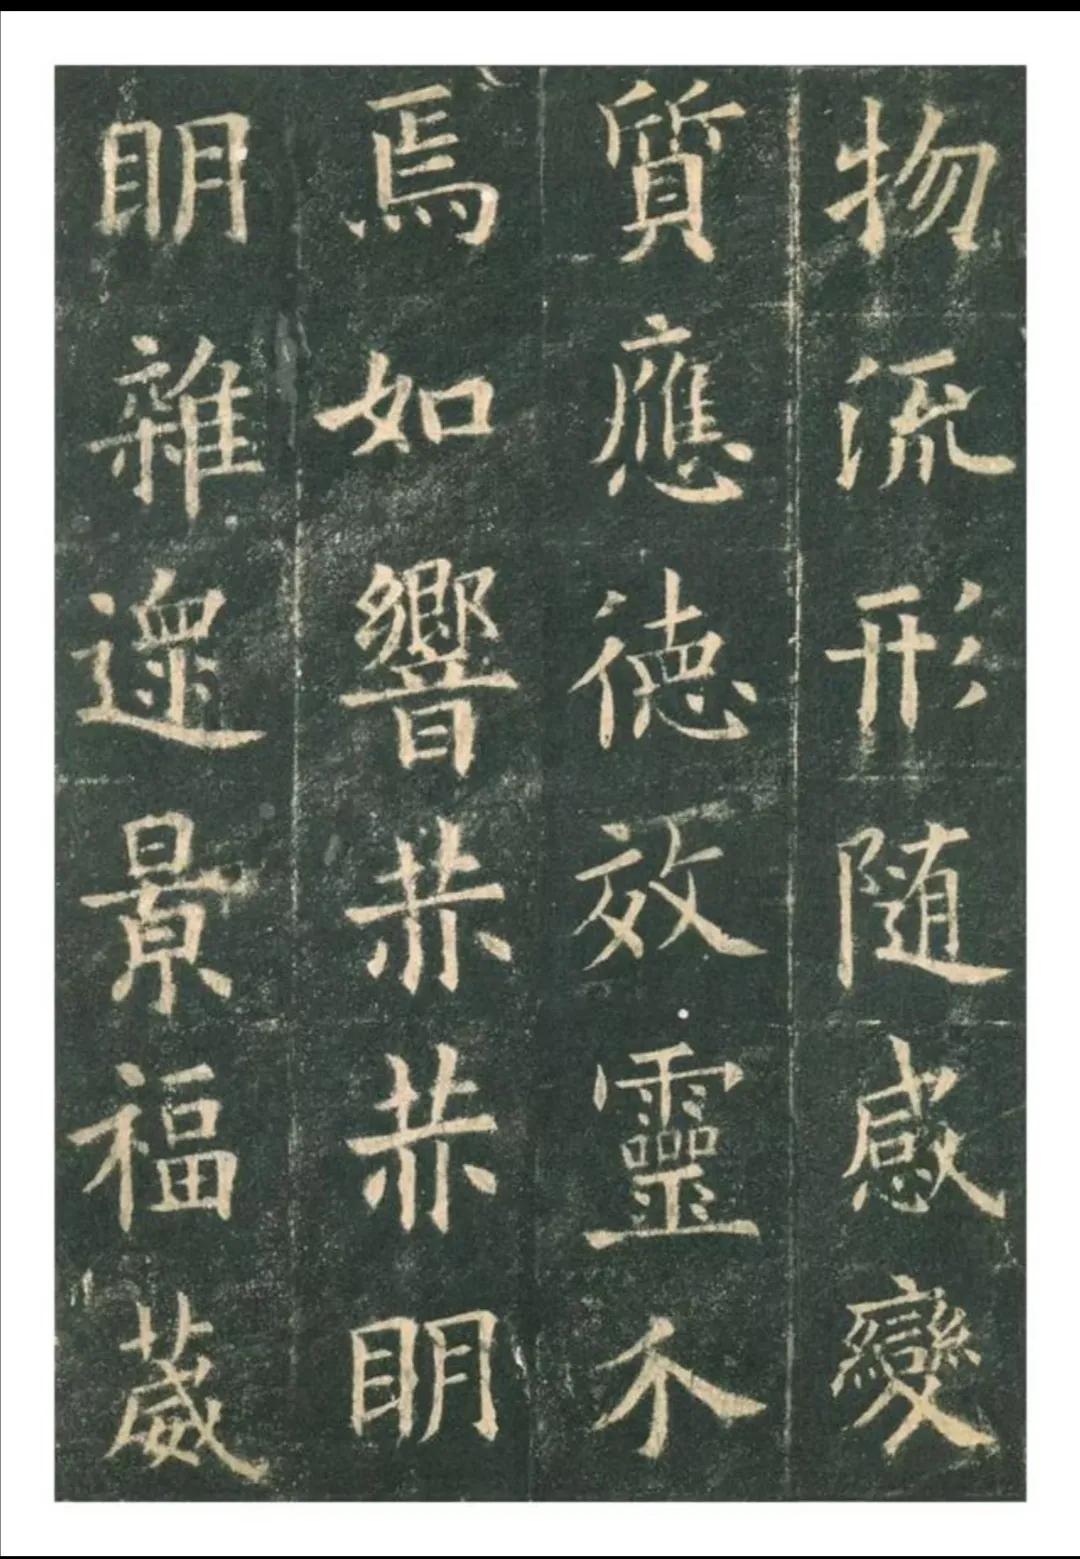 物流形随感變
質應德效靈不
焉如響赫赫明
明雜遝景福葳